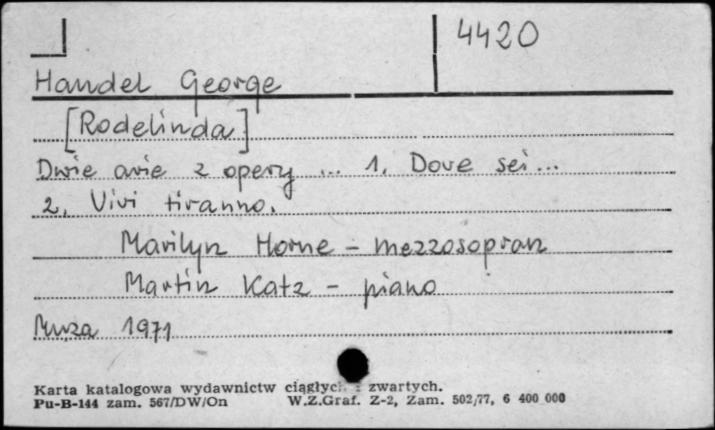 4420
Handel George
[Rodelinda]
Dwie arie z opery ... 1. Dove sei...
2. Vivi tiranno.
Marilyn Horne - mezzosopran
Martin Katz - piano
Muza 1971
Karta katalogowa wydawnictw ciągłych i zwartych.
Pu-B-144 zam. 567/DW/On W.Z.Graf. Z-2, Zam. 502/77, 6 400 000